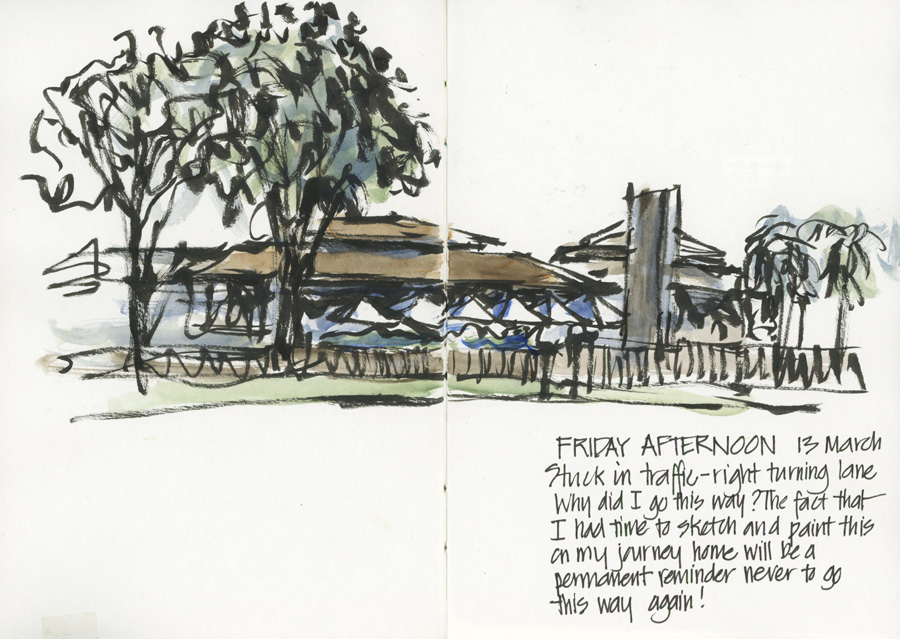 FRIDAY AFTERNOON 13 March
Stuck in traffic-right turning lane
Why did I go this way? The fact that
I had time to sketch and paint this
on my journey home will be a
permanent reminder never to go
this way again!